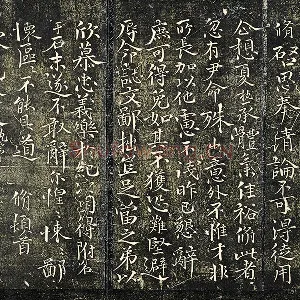 脩啓思奉清論不可得徒用
企想夏熱承體氣佳裕此者
忽有尹命殊出意外不惟才非
所長加以他患不淺昨已懇辭
庶可得免如其不獲恐難堅避
辱命誌文鄙拙豈足當之第以
欣慕忠義樂於紀頌得附名
石末遂不敢辭惶悚鄙
懷區區不道脩頓首